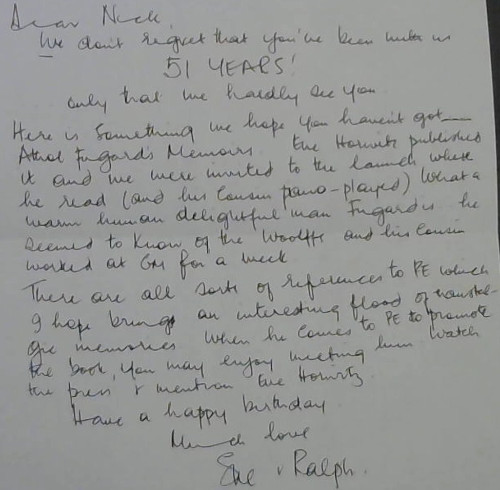 Dear Nick,
We don't regret that you've been with us
51 YEARS!
only that we hardly see you
Here is something we hope you haven't got—
Athol Fugard's Memoirs. Eve Horwitz published
it and we were invited to the launch where
he read (and his cousin piano-played) What a
warm human delightful man Fugard is he
seemed to know of the Woolffs and his cousin
worked at GM for a week
There are all sorts of references to PE which
I hope brings an interesting flood of nostal-
gic memories When he comes to PE to promote
the book, you may enjoy meeting him Watch
the press & mention Eve Horwitz.
Have a happy birthday
Much love
Eve & Ralph.